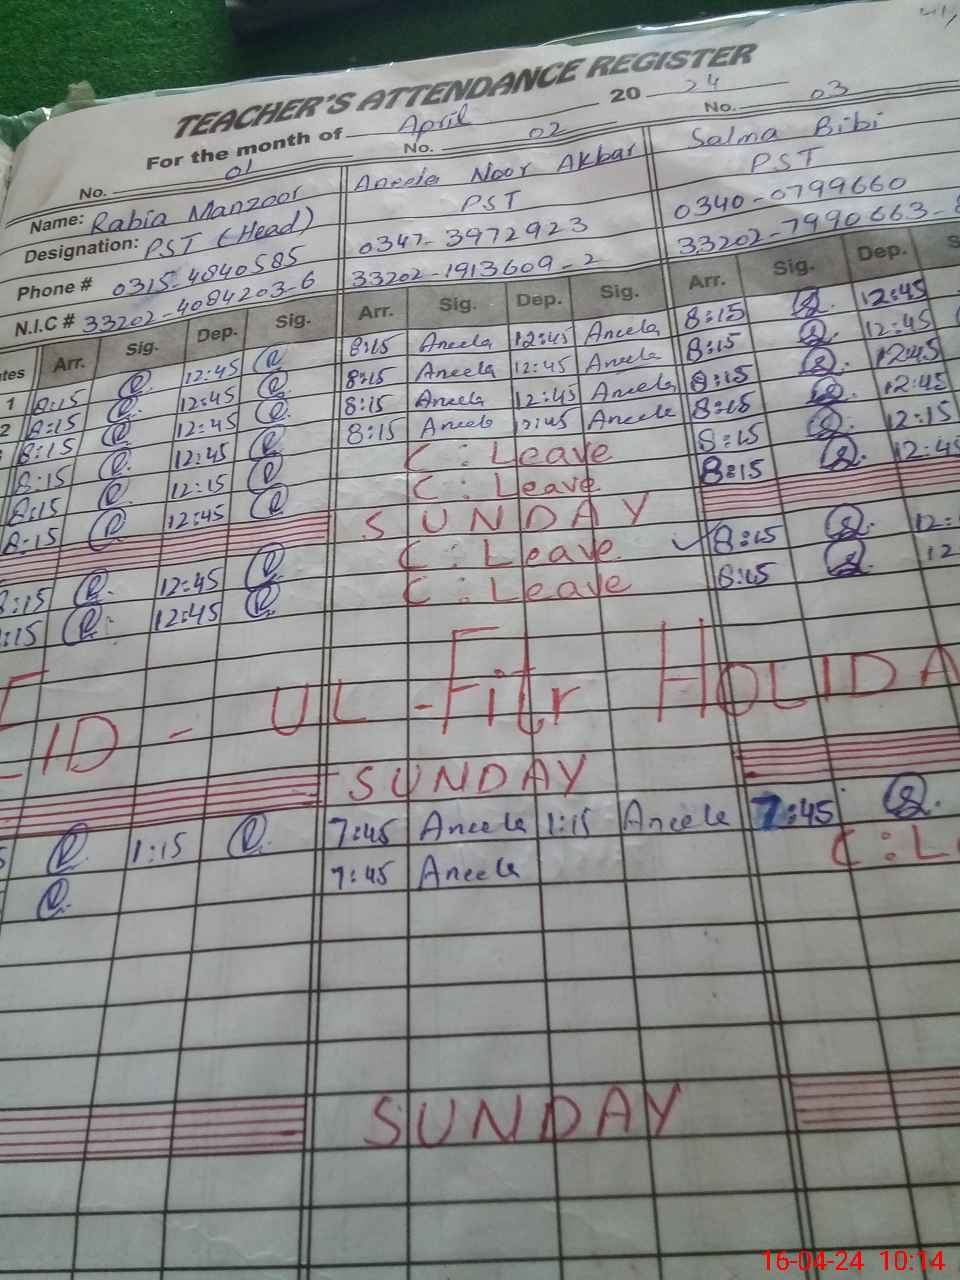 TEACHER'S ATTENDANCE REGISTER
For the month of April 20 24
No. 01 No. 02 No. 03
Name: Rabia Manzoor Aneela Noor Akbar Salma Bibi
Designation: PST (Head) PST PST
Phone # 0315-4840585 0347-3972923 0340-0799660
N.I.C # 33202-4084203-6 33202-1913609-2 33202-7990663-
Arr. Sig. Dep. Sig. Arr. Sig. Dep. Sig. Arr. Sig. Dep.
1 8:15 12:45 8:15 Aneela 12:45 Aneela 8:15 12:45
2 8:15 12:45 8:15 Aneela 12:45 Aneela 8:15 12:45
8:15 12:45 8:15 Aneela 12:45 Aneela 8:15 12:45
8:15 12:45 8:15 Aneela 12:45 Aneela 8:15 12:45
8:15 12:15 C : Leave 8:15 12:15
8:15 12:45 C : Leave 8:15 12:45
SUNDAY
8:15 12:45 C : Leave 8:15 12:
:15 12:45 C : Leave 8:15 12
EID - UL - Fitr HOLIDA
SUNDAY
1:15 7:45 Aneela 1:15 Aneela 7:45
7:45 Aneela C : L
SUNDAY
16-04-24 10:14